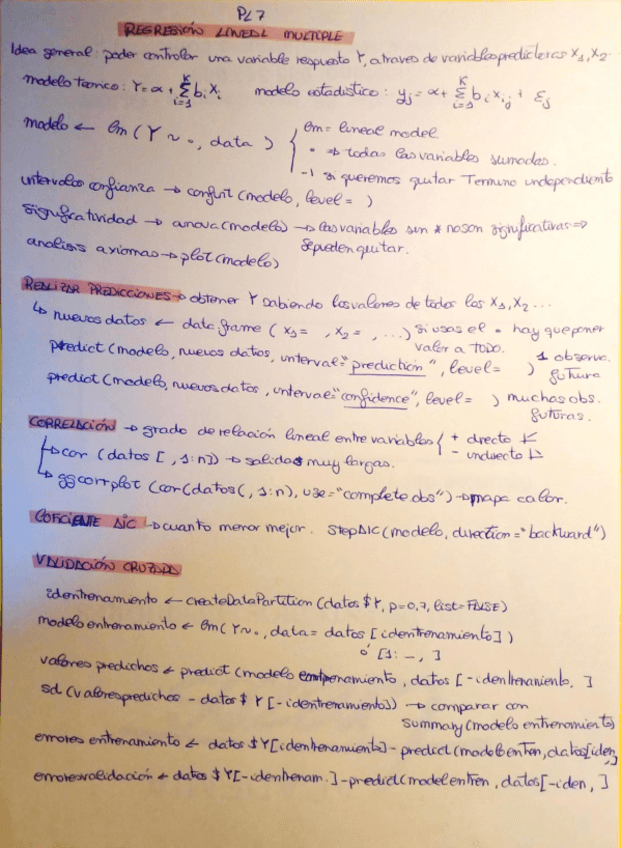 PL7
REGRESIÓN LINEAL MULTIPLE
Idea general: poder controlar una variable respuesta Y, atraves de variables predictoras X1, X2..
modelo teorico: Y = α + Σ bi Xi   modelo estadistico: yj = α + Σ bi xij + εj
modelo ← lm(Y ~ ., data ) { lm = lineal model
. ⇒ todas las variables sumadas.
-1 si queremos quitar Termino independiente
intervalos confianza → confint (modelo, level = )
significatividad → anova (modelo) → las variables sin * no son significativas ⇒
se pueden quitar.
analisis axiomas → plot (modelo)
REALIZAR PREDICCIONES → obtener Y sabiendo los valores de todos los X1, X2 ...
↳ nuevos datos ← data.frame ( X1 = , X2 = , ...) si usas el . hay que poner
valor a TODO.
predict (modelo, nuevos datos, interval = "prediction", level = ) 1 observa.
futura
predict (modelo, nuevos datos, interval = "confidence", level = ) muchas obs.
futuras.
CORRELACIÓN → grado de relación lineal entre variables { + directo
- indirecto
↳ cor (datos [ , 1:n]) → salidas muy largas.
↳ ggcorrplot (cor(datos(, 1:n), use = "complete obs") → mapa calor.
COFICIENTE AIC → cuanto menor mejor. StepAIC (modelo, direction = "backward")
VALIDACIÓN CRUZADA
identrenamiento ← createDataPartition (datos $ Y, p=0,7, list=FALSE)
modelo entrenamiento ← lm (Y~., data = datos [identrenamiento])
ó [1: –, ]
valores predichos ← predict (modelo entrenamiento, datos [-identrenamiento, ]
sd (valorespredichos - datos $ Y [-identrenamiento]) → comparar con
summary (modelo entrenamiento)
errores entrenamiento ← datos $Y[identrenamiento] - predict (modeloentren, datos[iden,]
erroresvalidación ← datos $Y[-identrenam.] - predict (modelentren, datos[-iden, ]